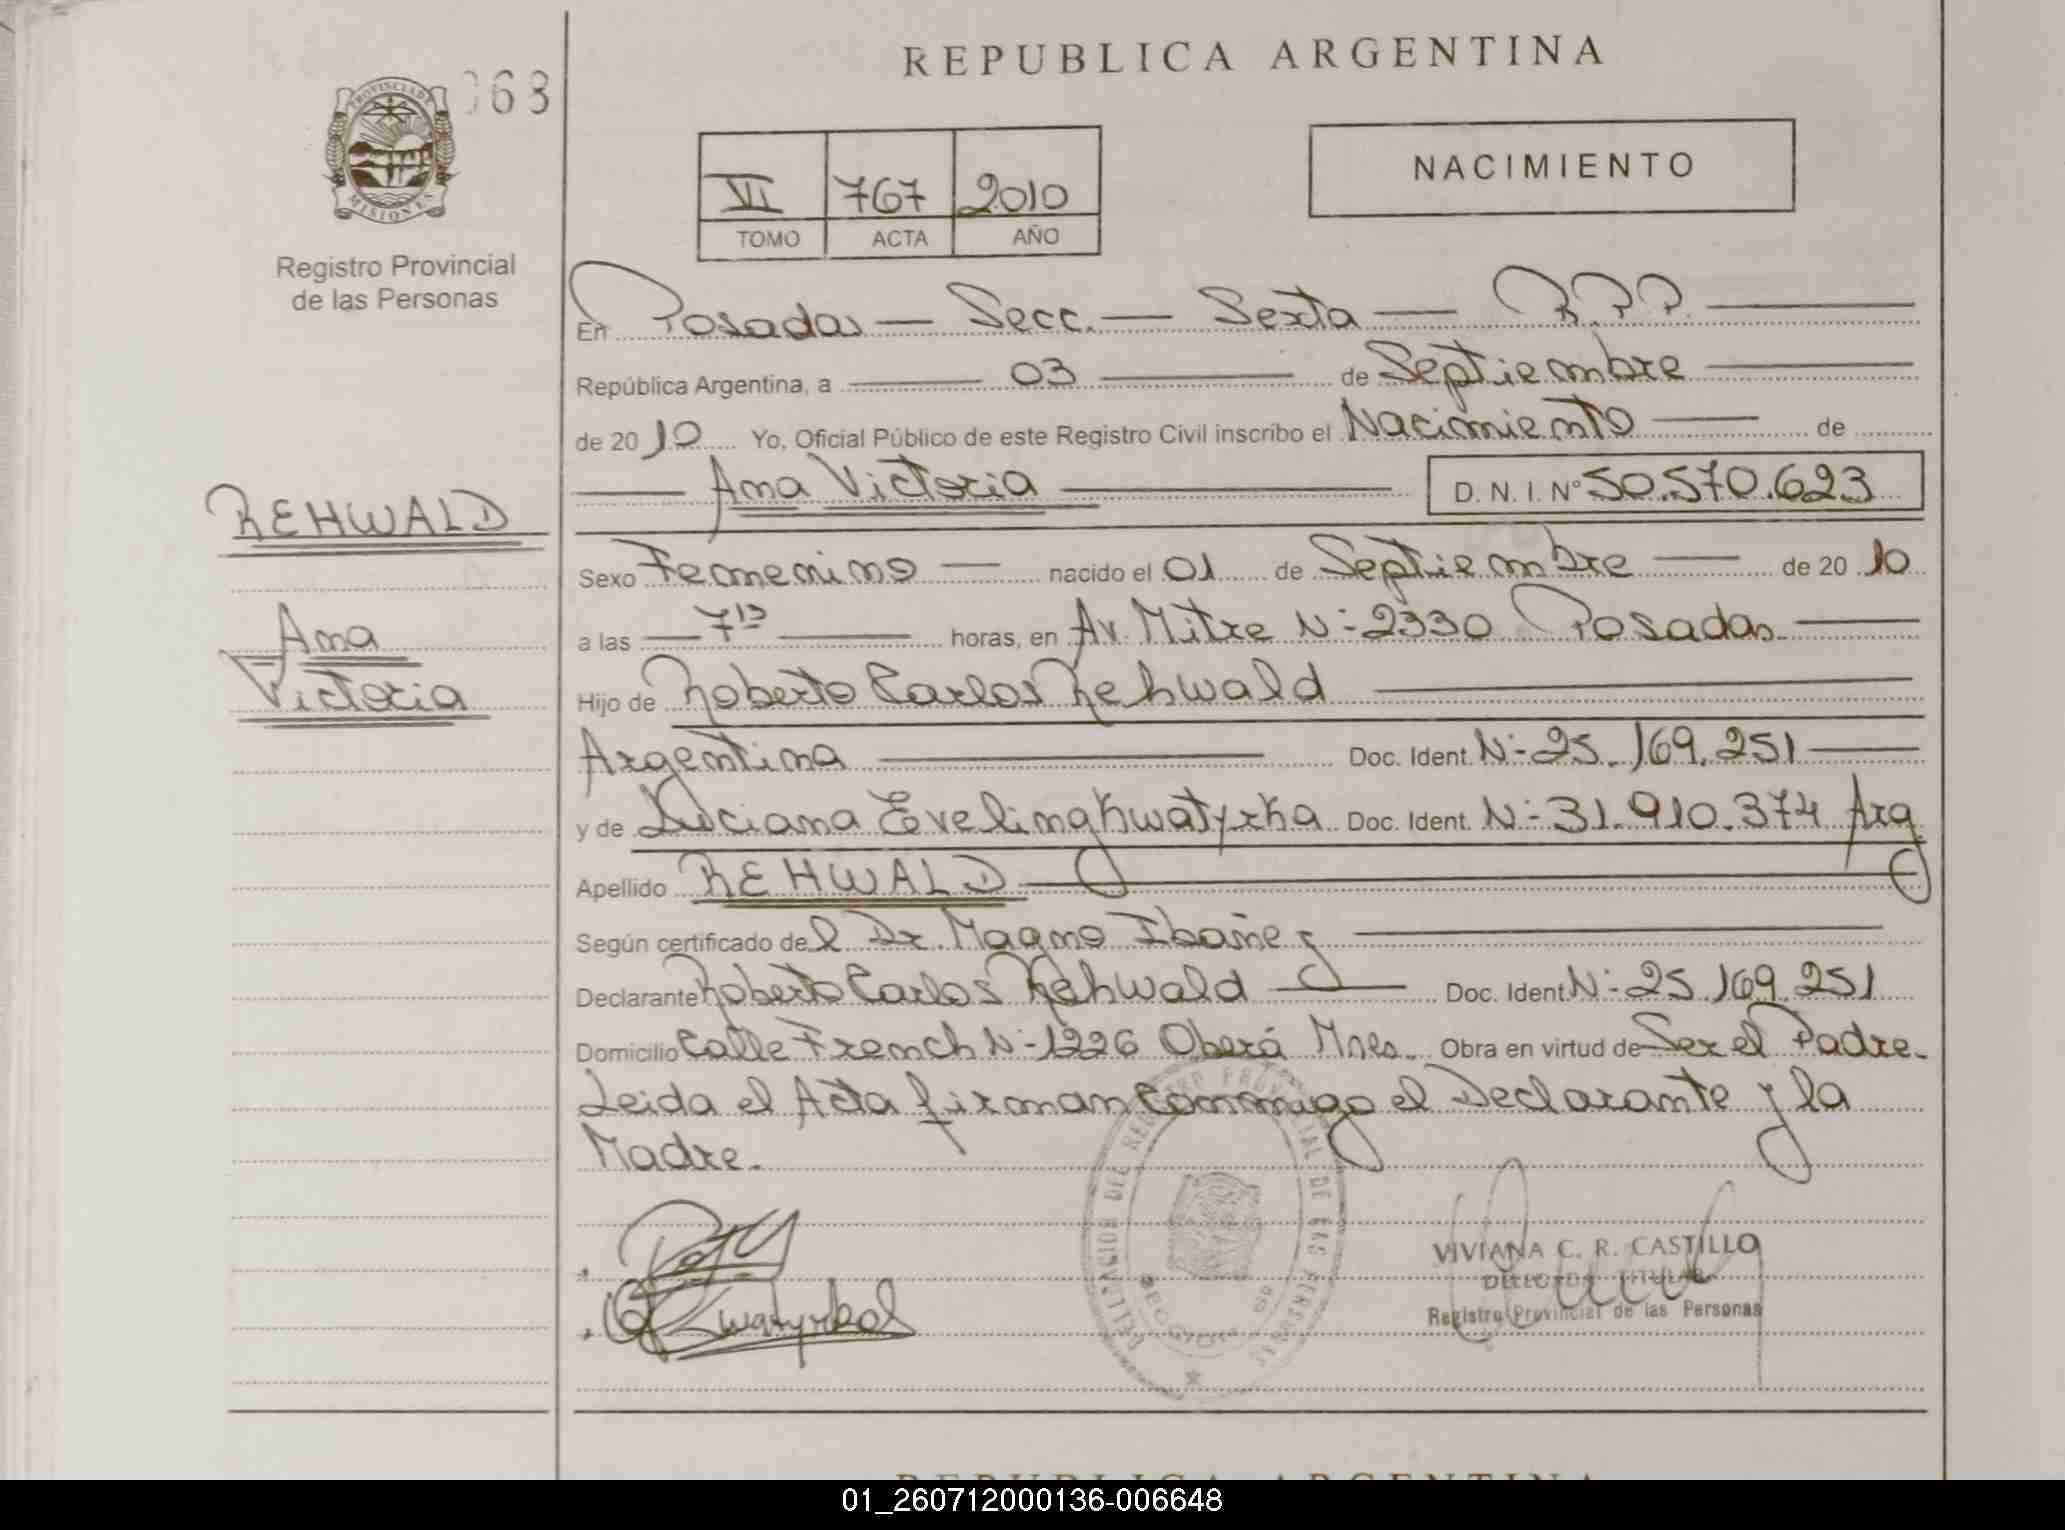 REPUBLICA ARGENTINA
068
PROVINCIA DE
MISIONES
Registro Provincial
de las Personas
VI 767 2010
TOMO ACTA AÑO
NACIMIENTO
En Posadas — Secc. — Sexta — R.P.P.
República Argentina, a 03 de Septiembre
de 2010 Yo, Oficial Público de este Registro Civil inscribo el Nacimiento de
Ana Victoria D. N. I. Nº 50.570.623
REHWALD
Sexo Femenino — nacido el 01 de Septiembre de 2010
Ana
a las 7 horas, en Av. Mitre Nº 2330 Posadas
Victoria
Hijo de Roberto Carlos Rehwald
Argentina Doc. Ident. Nº 25.169.251
y de Luciana Eveling Kwatyrka Doc. Ident. Nº 31.910.374 Arg
Apellido REHWALD
Según certificado del Dr. Magno Ibañez
Declarante Roberto Carlos Rehwald Doc. Ident Nº 25.169.251
Domicilio Calle French Nº 1226 Oberá Mnes. Obra en virtud de Ser el Padre.
Leida el Acta firman conmigo el Declarante y la
Madre.
DELEGACION DEL REGISTRO PROVINCIAL DE LAS PERSONAS
Kwatyrka
VIVIANA C. R. CASTILLO
DELEGADA TITULAR
Registro Provincial de las Personas
REPUBLICA ARGENTINA
01_260712000136-006648